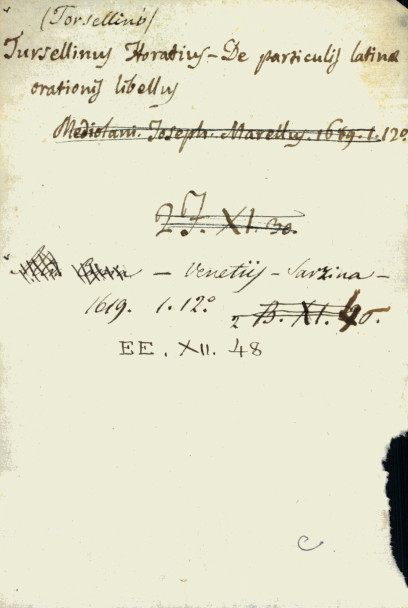 (Torsellino)
Tursellinus Horatius - De particulis latinæ
orationis libellus
Mediolani. Joseph. Marellus. 1689. 1. 12º
2 J. XI. 30.
— Venetiis - Sarzina -
1619. 1. 12º 2 B. XI. 40.
EE. XII. 48